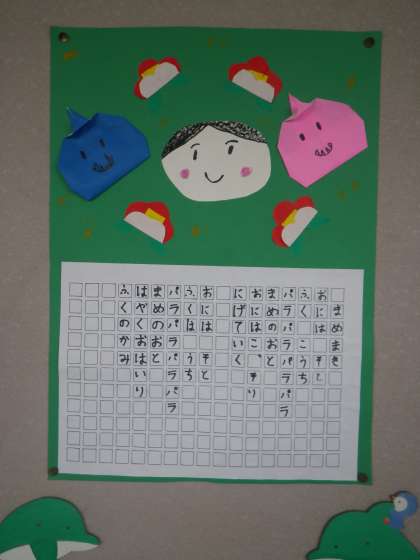 まめまき
おには そと
ふくは うち
パラパラパラパラ
まめのおと
おにはこっそり
にげていく
おには そと
ふくは うち
パラパラパラパラ
まめのおと
はやくおはいり
ふくのかみ